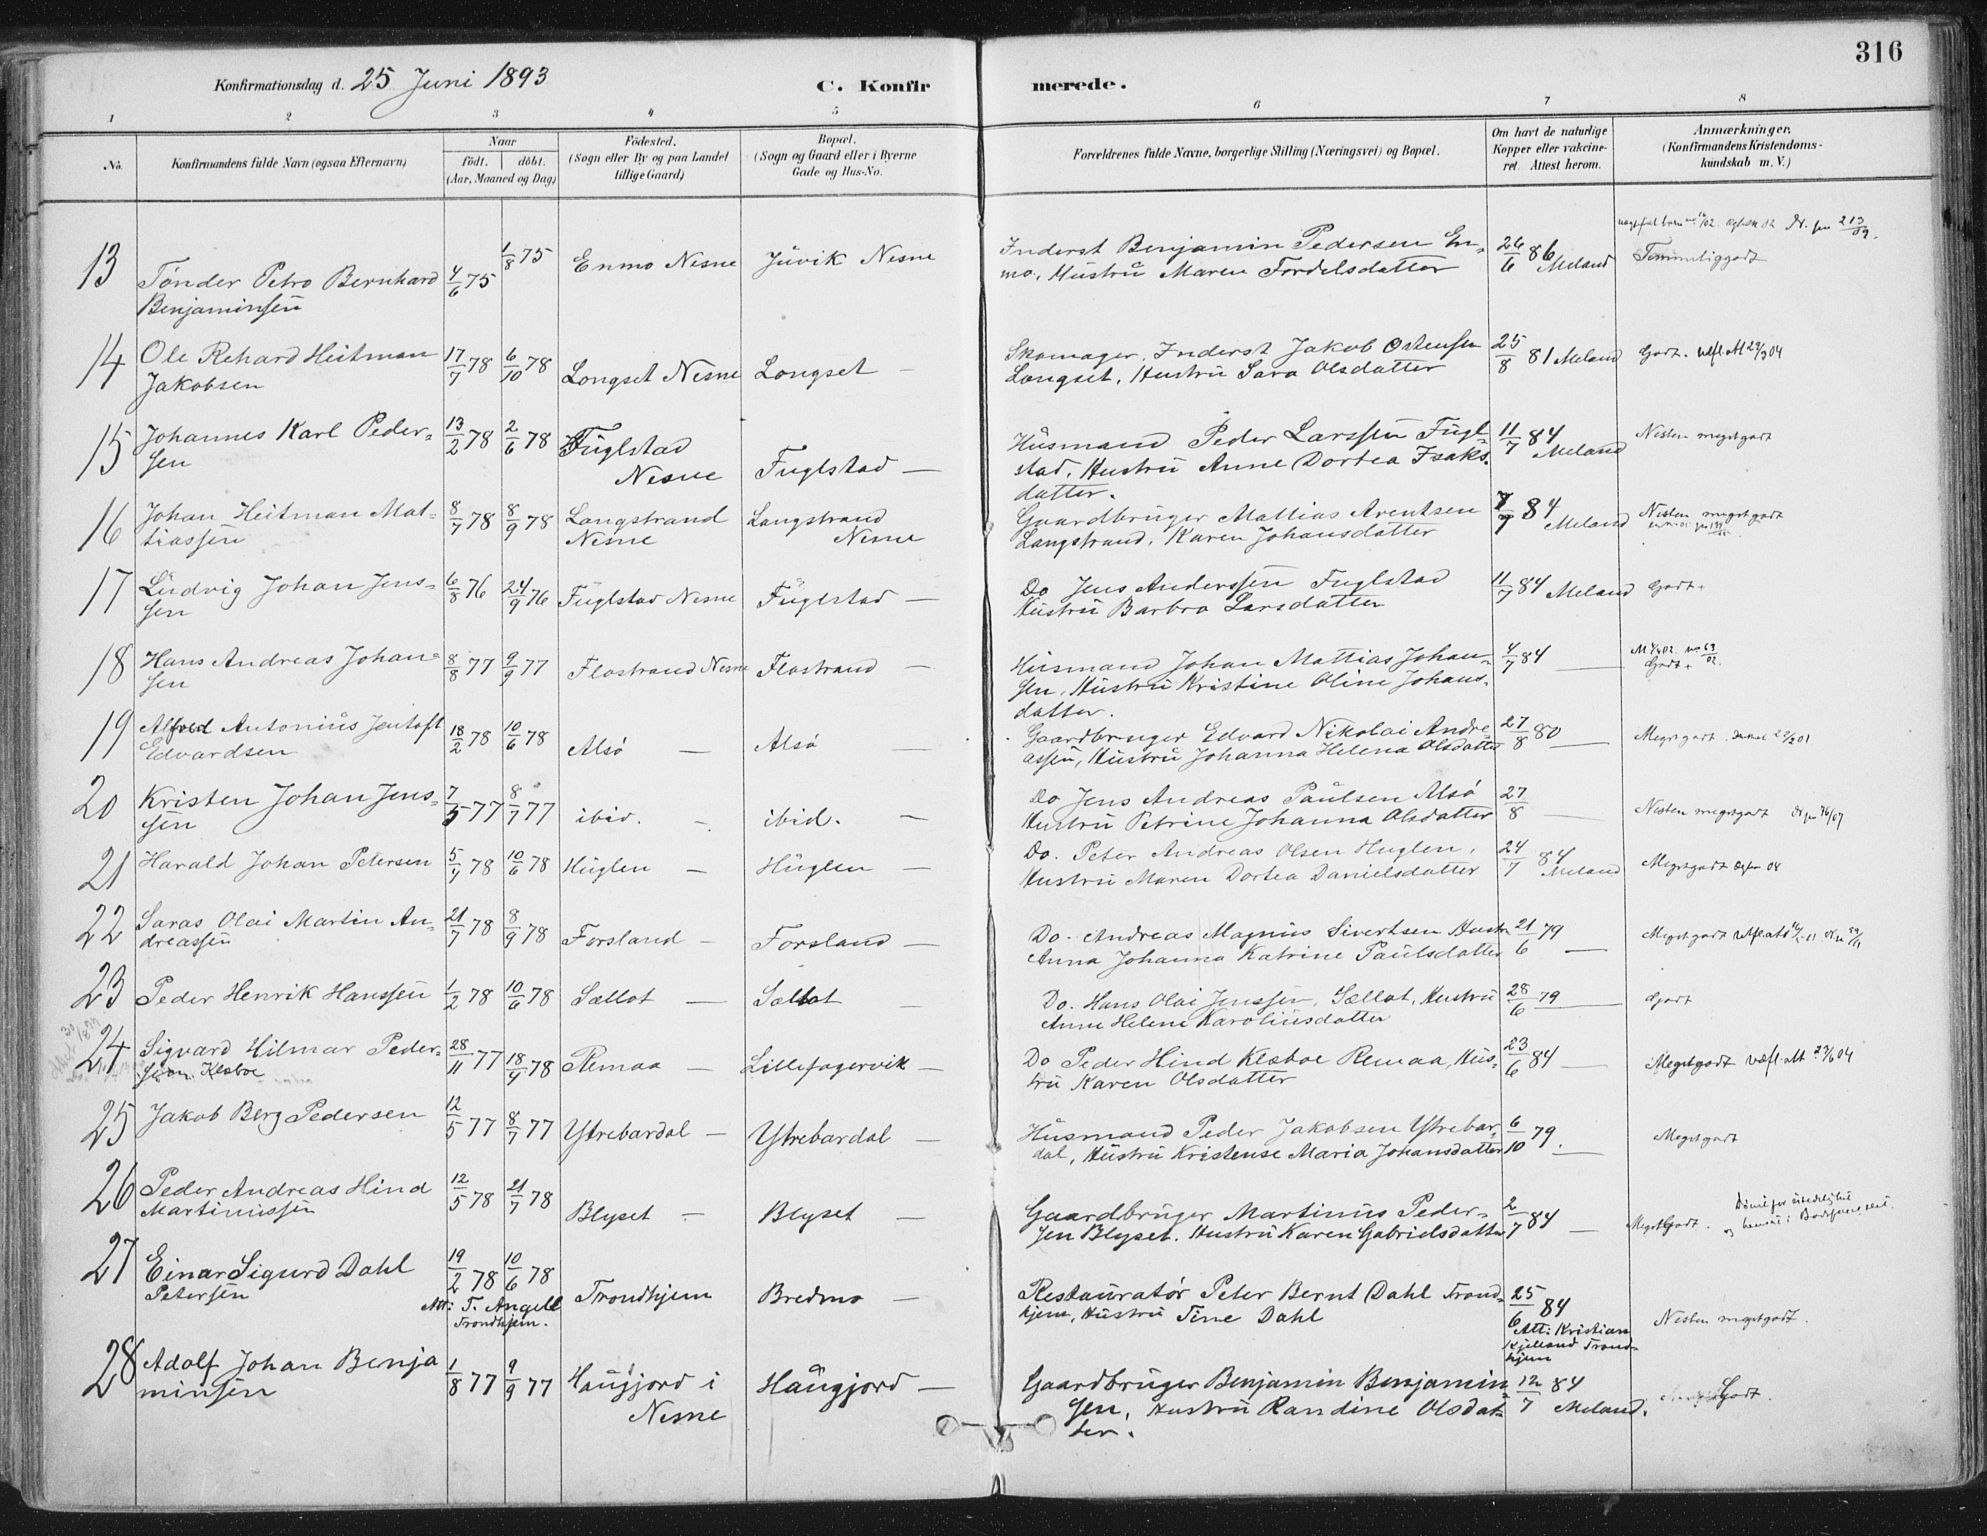 316
Konfirmationsdag d. 25 Juni 1893 C. Konfirmerede.
1 2 3 4 5 6 7 8
No. Konfirmandens fulde Navn (ogsaa Efternavn) Naar födt. döbt. (Aar, Maaned og Dag) Födested. (Sogn eller By og paa Landet tillige Gaard) Bopæl. (Sogn og Gaard eller i Byerne Gade og Hus-No. Forældrenes fulde Navne, borgerlige Stilling (Næringsvei) og Bopæl. Om havt de naturlige Kopper eller vakcineret. Attest herom. Anmærkninger. (Konfirmandens Kristendomskundskab m. V.)
13 Tønder Petro Bernhard Benjaminsen 4/6 75 1/8 75 Enmo Nesne Juvik Nesne Inderst Benjamin Pedersen Enmo, Hustru Maren Tordelsdatter 26/6 86 Meland Temmeliggodt
14 Ole Rehard Heitman Jakobsen 17/7 78 6/10 78 Longset Nesne Longset — Skomager, Inderst Jakob Ostensen Longset, Hustru Sara Olsdatter 25/8 81 Meland Godt.
15 Johannes Karl Pedersen 13/2 78 2/6 78 Fuglstad Nesne Fuglstad — Husmand Peder Larssen Fuglstad, Hustru Anne Dortea Isaksdatter. 11/7 84 Meland Nesten megetgodt
16 Johan Heitman Mattiassen 8/7 78 8/9 78 Langstrand Nesne Langstrand Nesne Gaardbruger Mattias Arentsen Langstrand, Karen Johansdatter 84 Meland Nesten megetgodt
17 Ludvig Johan Jenssen 6/8 76 24/9 76 Fuglstad Nesne Fuglstad — Do Jens Anderssen Fuglstad Hustru Barbro Larsdatter 11/7 84 Meland Godt+
18 Hans Andreas Johansen 8/8 77 9/9 77 Flostrand Nesne Flostrand — Husmand Johan Mattias Johansen, Hustru Kristine Oline Johansdatter. 4/7 84 — Godt+
19 Alfred Antonius Jentoft Edvardsen 18/2 78 10/6 78 Alsö — Alsö Gaardbruger Edvard Nikolai Andreassen, Hustru Johanna Helena Olsdatter 27/8 80 — Megetgodt.
20 Kristen Johan Jenssen 7/5 77 8/7 77 ibid. — ibid. — Do Jens Andreas Paulsen Alsö Hustru Petrine Johanna Olsdatter 27/8 — Nesten megetgodt
21 Harald Johan Petersen 5/4 78 10/6 78 Huglen — Huglen — Do. Peter Andreas Olsen Huglen, Hustru Maren Dortea Danielsdatter 24/7 84 Meland Megetgodt
22 Saras Olai Martin Andreassen 21/7 78 8/9 78 Forsland — Forsland — Do. Andreas Magnus Sivertsen Hustru Anna Johanna Katrine Paulsdatter 21/6 79 — Megetgodt
23 Peder Henrik Hanssen 1/2 78 10/6 78 Sællot — Sællot — Do. Hans Olai Jenssen, Sællot, Hustru Anne Helene Karoliusdatter 28/6 79 — Godt
24 Sigvard Hilmar Pedersen Klæboe 28/11 77 18/4 78 Remaa — Lillefagervik — Do Peder Hind Klæboe Remaa, Hustru Karen Olsdatter 23/6 84 — Megetgodt
25 Jakob Berg Pedersen 12/5 77 8/7 77 Ytrebardal — Ytrebardal — Husmand Peder Jakobsen Ytrebardal, Hustru Kristense Maria Johansdatter 6/10 79. — Megetgodt
26 Peder Andreas Hind Martinussen 12/5 78 21/7 78 Blyset — Blyset — Gaardbruger Martinus Pedersen Blyset. Hustru Karen Gabrielsdatter 2/7 84 — Megetgodt.
27 Einar Sigurd Dahl Petersen 19/2 78 10/6 78 Att: T. Angell Trondhjem. Trondhjem Bredmo — Restauratør Peter Bernt Dahl Trondhjem, Hustru Tine Dahl 25/6 84 Att: Kristian Kjelland Trondhjem Nesten megetgodt.
28 Adolf Johan Benjaminsen 1/8 77 9/9 77 Haugjord i Nesne Haugjord — Gaardbruger Benjamin Benjaminsen, Hustru Randine Olsdatter. 12/7 84 Meland. Godt.